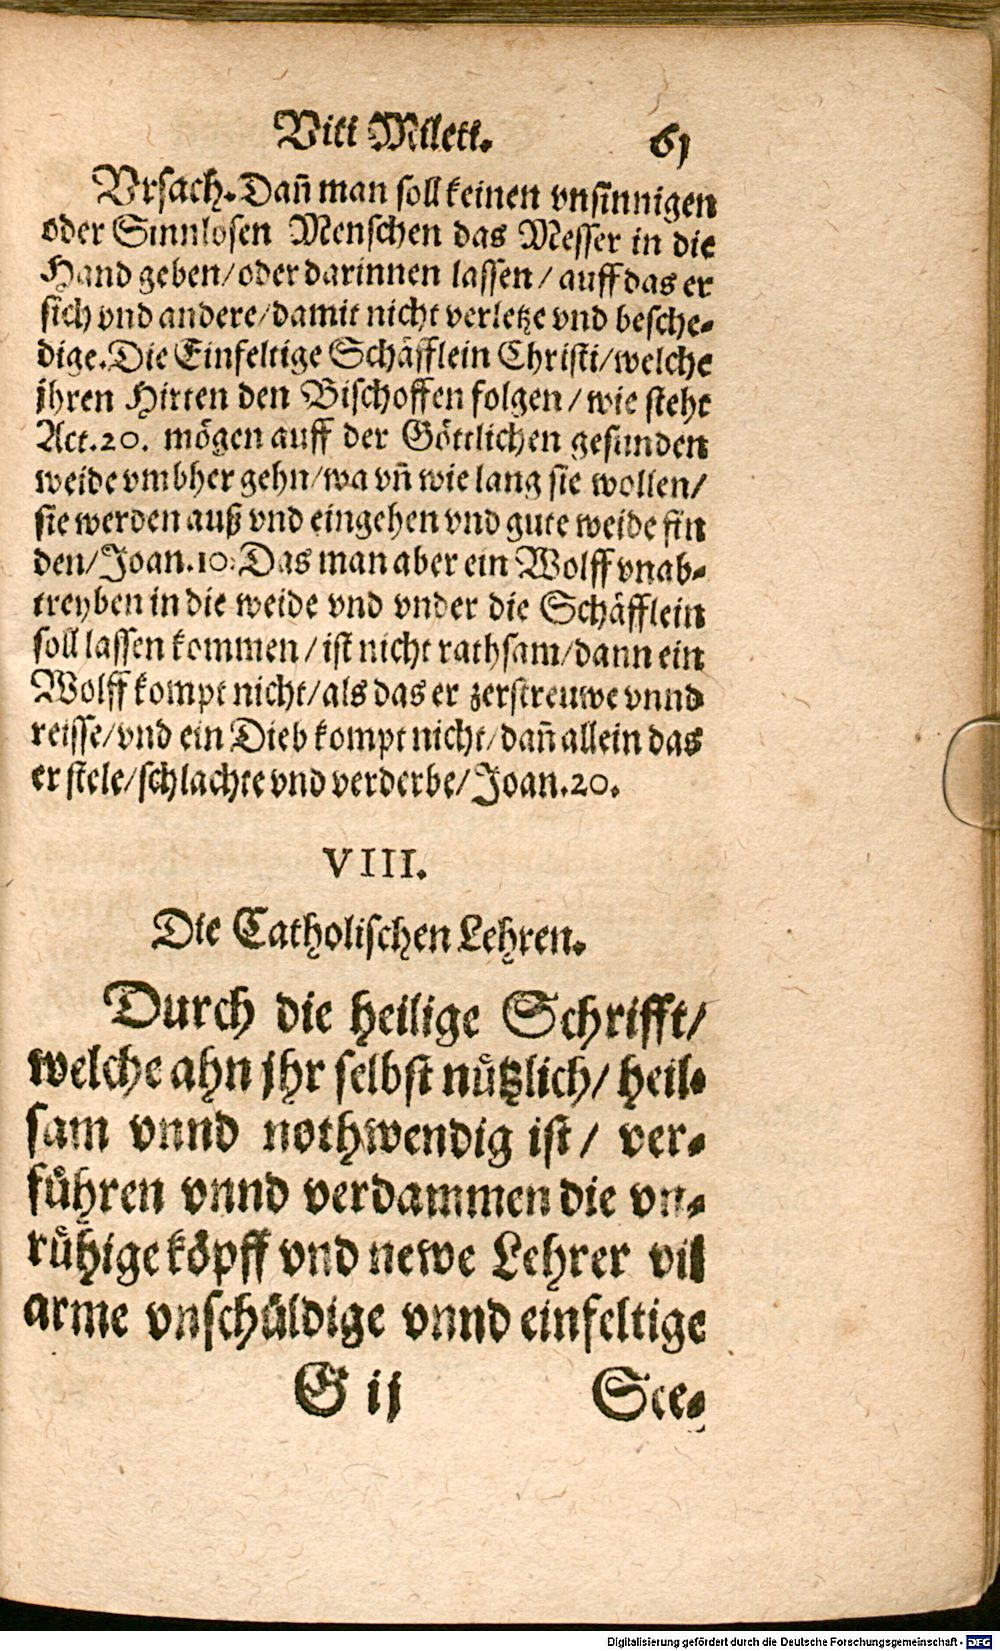 Viti Mileti. 61
Vrsach. Dañ man soll keinen vnsinnigen
oder Sinnlosen Menschen das Messer in die
Hand geben/ oder darinnen lassen/ auff das er
sich vnd andere/ damit nicht verletze vnd besche-
dige. Die Einfeltige Schäfflein Christi/ welche
jhren Hirten den Bischoffen folgen/ wie steht
Act. 20. mögen auff der Göttlichen gesunden
weide vmbher gehn/ wa vñ wie lang sie wollen/
sie werden auß vnd eingehen vnd gute weide fin
den/ Joan. 10. Das man aber ein Wolff vnab-
treyben in die weide vnd vnder die Schäfflein
soll lassen kommen/ ist nicht rathsam/ dann ein
Wolff kompt nicht/ als das er zerstreuwe vnnd
reisse/ vnd ein Dieb kompt nicht/ dañ allein das
er stele/ schlachte vnd verderbe/ Joan. 20.
VIII.
Die Catholischen Lehren.
Durch die heilige Schrifft/
welche ahn jhr selbst nützlich/ heil-
sam vnnd nothwendig ist/ ver-
führen vnnd verdammen die vn-
rühige köpff vnd newe Lehrer vil
arme vnschüldige vnnd einfeltige
G ij See-
Digitalisierung gefördert durch die Deutsche Forschungsgemeinschaft - DFG